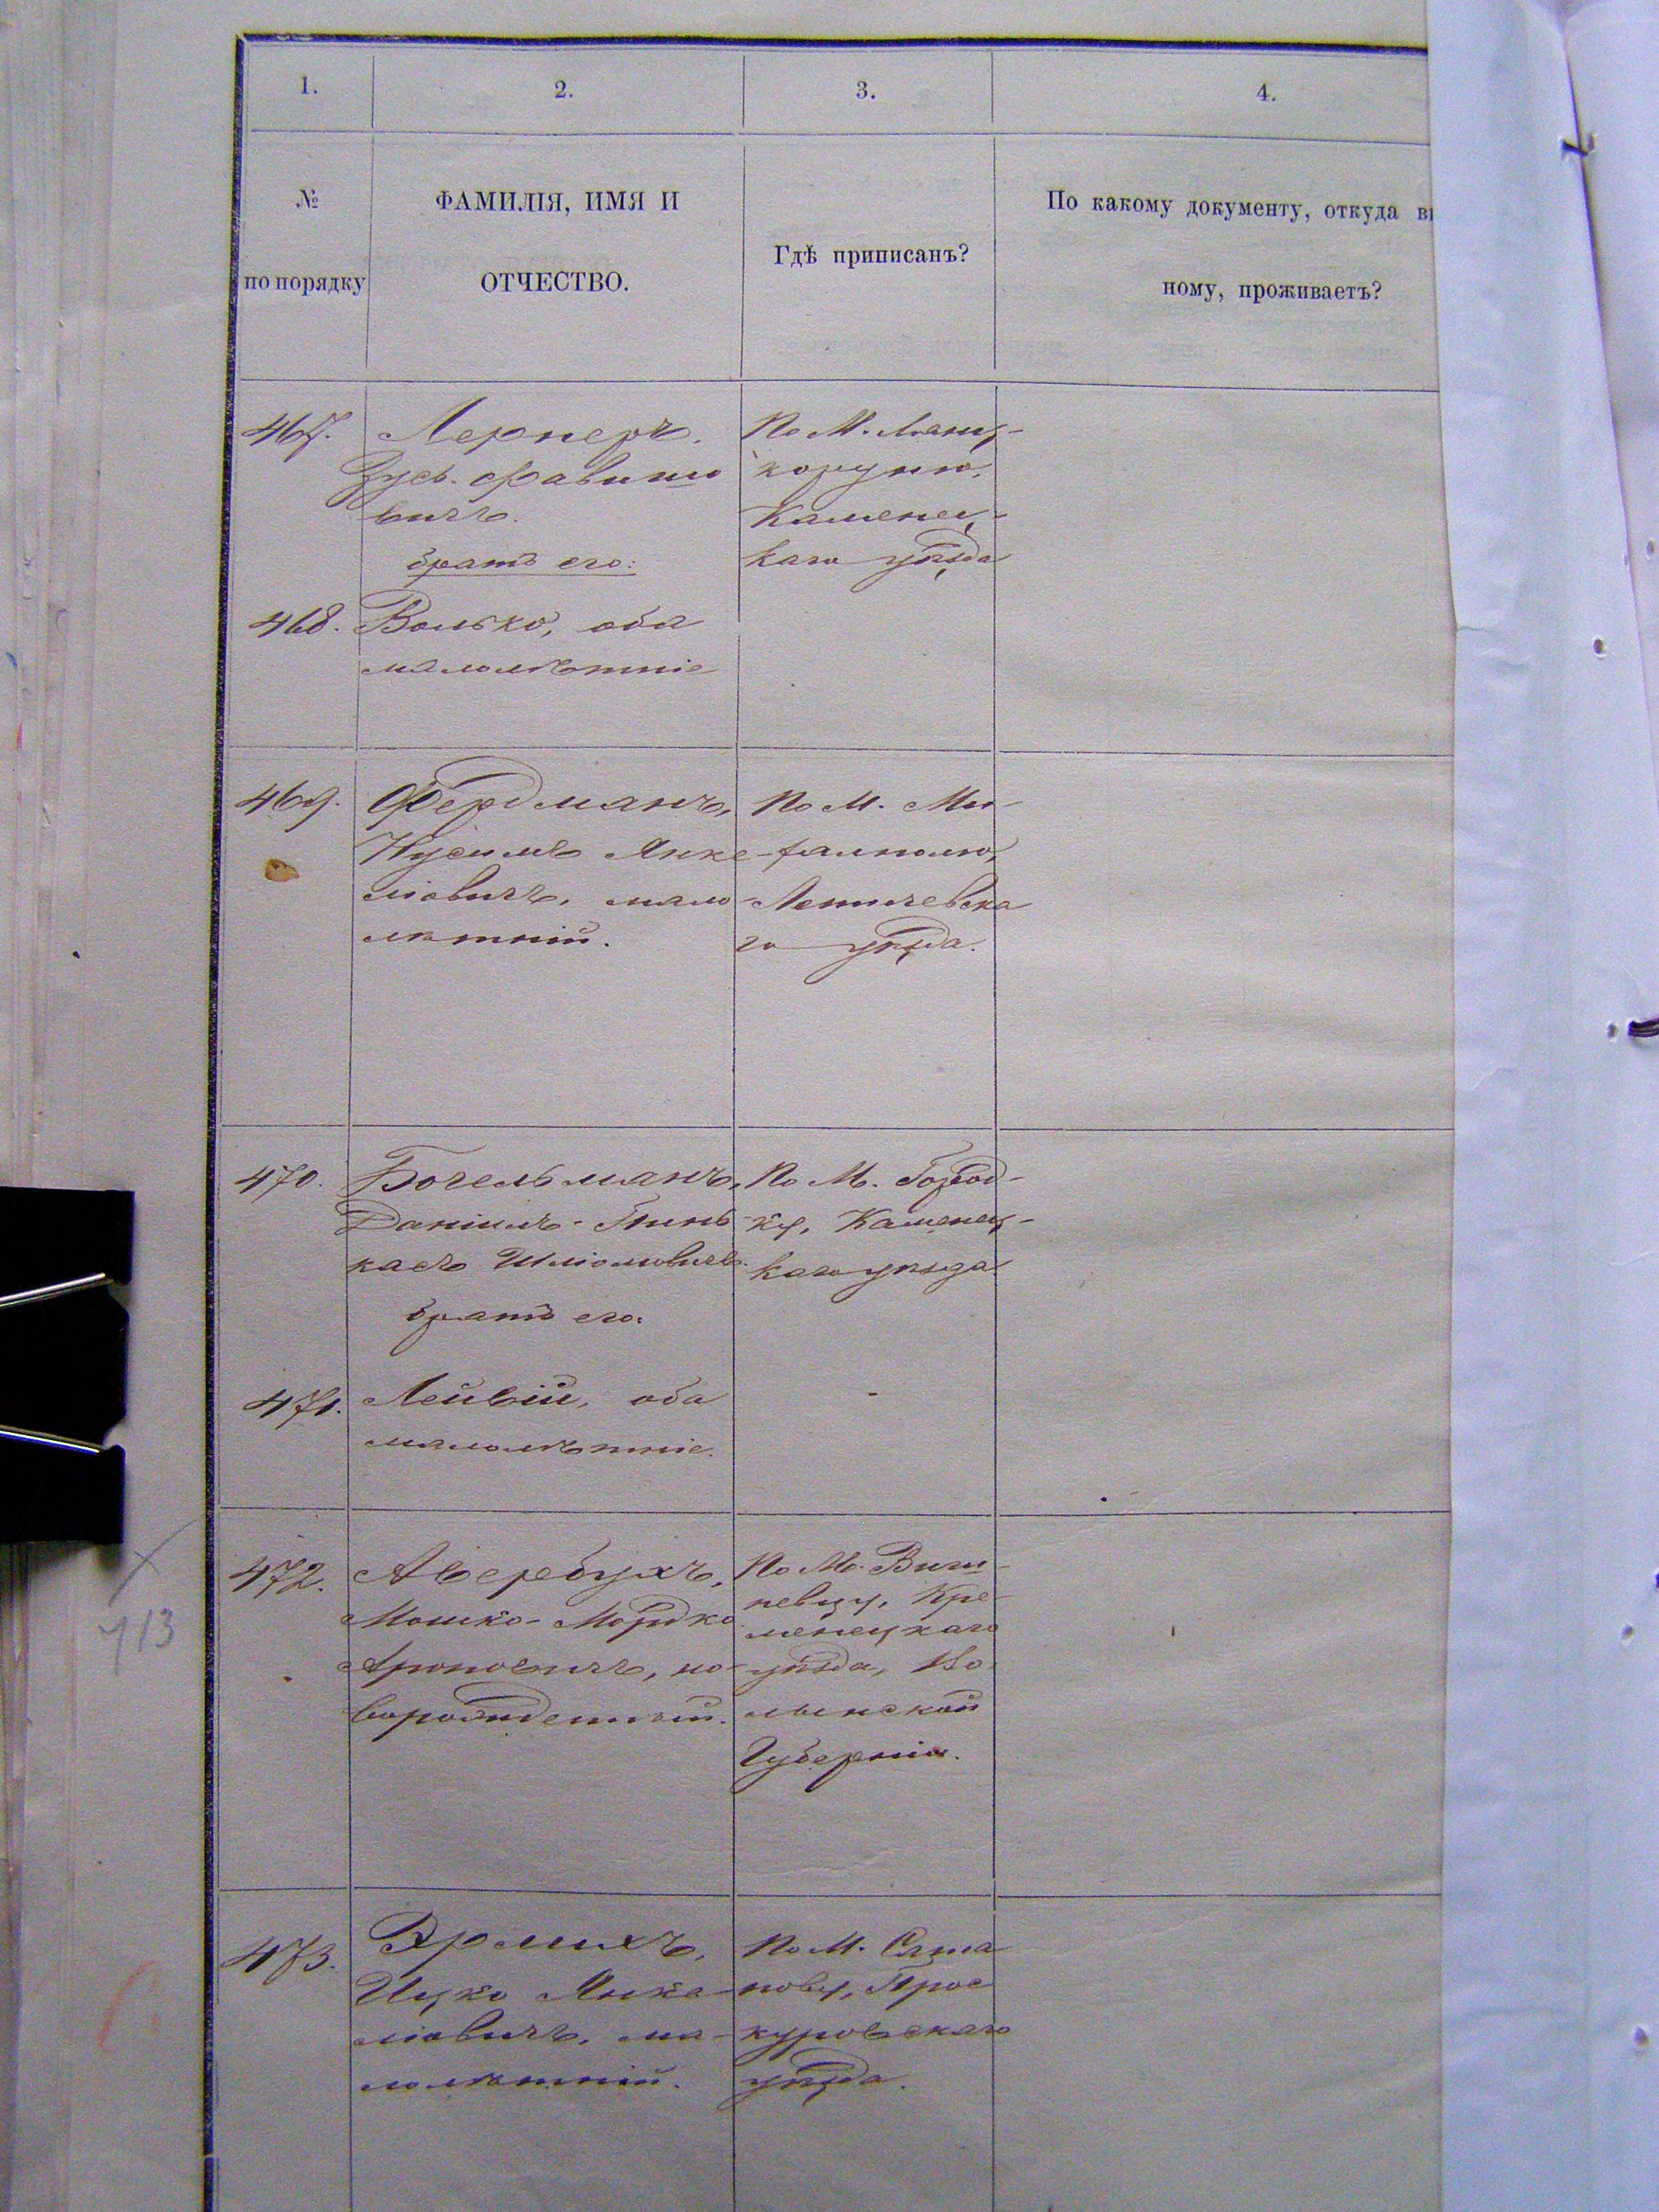 1. 2. 3. 4.
№ по порядку
ФАМИЛІЯ, ИМЯ И
ОТЧЕСТВО.
Гдѣ приписанъ?
По какому документу, откуда в
ному, проживаетъ?
467. Лернеръ,
Зусь
вичъ.
братъ его:
По М. Лянц-
коруню,
Каменец-
каго уѣзда
468. Волько, оба
малолѣтніе
469. Фердманъ,
Нусимъ Янке-
ліовичъ, мало-
лѣтній.
По М. Ми-
хамполю,
Летичевска
го уѣзда.
470. Бочельманъ,
Даніилъ-Пинь-
касъ Шліомовичъ.
братъ его.
По М. Город-
ку, Каменец-
каго уѣзда
471. Лейвій, оба
малолѣтніе.
472. Авербухъ,
Мошко-Мордко
Ароновичъ, но-
ворожденный.
По М. Виш-
невцу, Кре-
менецкаго
уѣзда, Во
лынской
Губерніи.
473. Эрлихъ,
Ицко Янке-
ліовичъ, ма-
лолѣтній.
По М. Сата
нову, Прос
куровскаго
уѣзда.
413